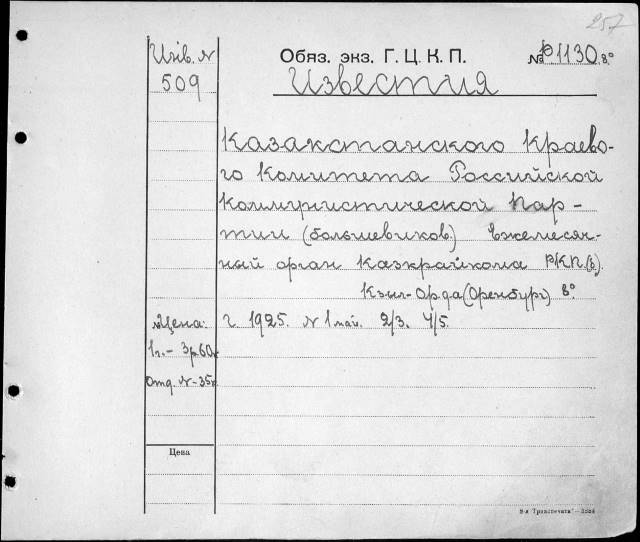 257
Инв. N
509
Обяз. экз. Г. Ц. К. П. № Р1130 8°
Известия
Казакстанского Краево-
го Комитета Российской
Коммунистической Пар-
тии (большевиков.) Ежемесяч-
ный орган Казкрайкома РКП.(б).
Кзыл-Орда (Оренбург) 8°
г. 1925. N 1 май. 2/3. 4/5.
Цена:
1г.- 3р.60к
Отд. N-35к
Цена